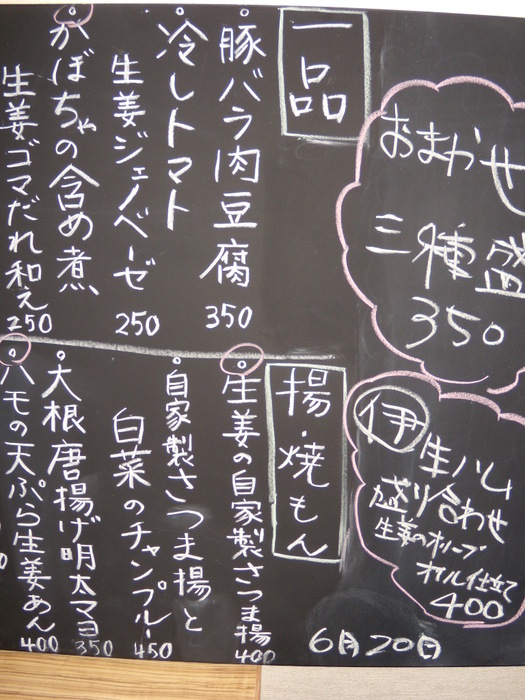 おまかせ
三種盛
350
一品
豚バラ肉豆腐
350
冷しトマト
生姜ジェノベーゼ
250
かぼちゃの含め煮
生姜ゴマだれ和え
250
伊
生ハム
盛り合わせ
生姜のオリーブ
オイル仕立て
400
揚・焼もん
生姜の自家製さつま揚
400
自家製さつま揚と
白菜のチャンプルー
450
大根唐揚げ明太マヨ
350
ハモの天ぷら生姜あん
400
6月20日